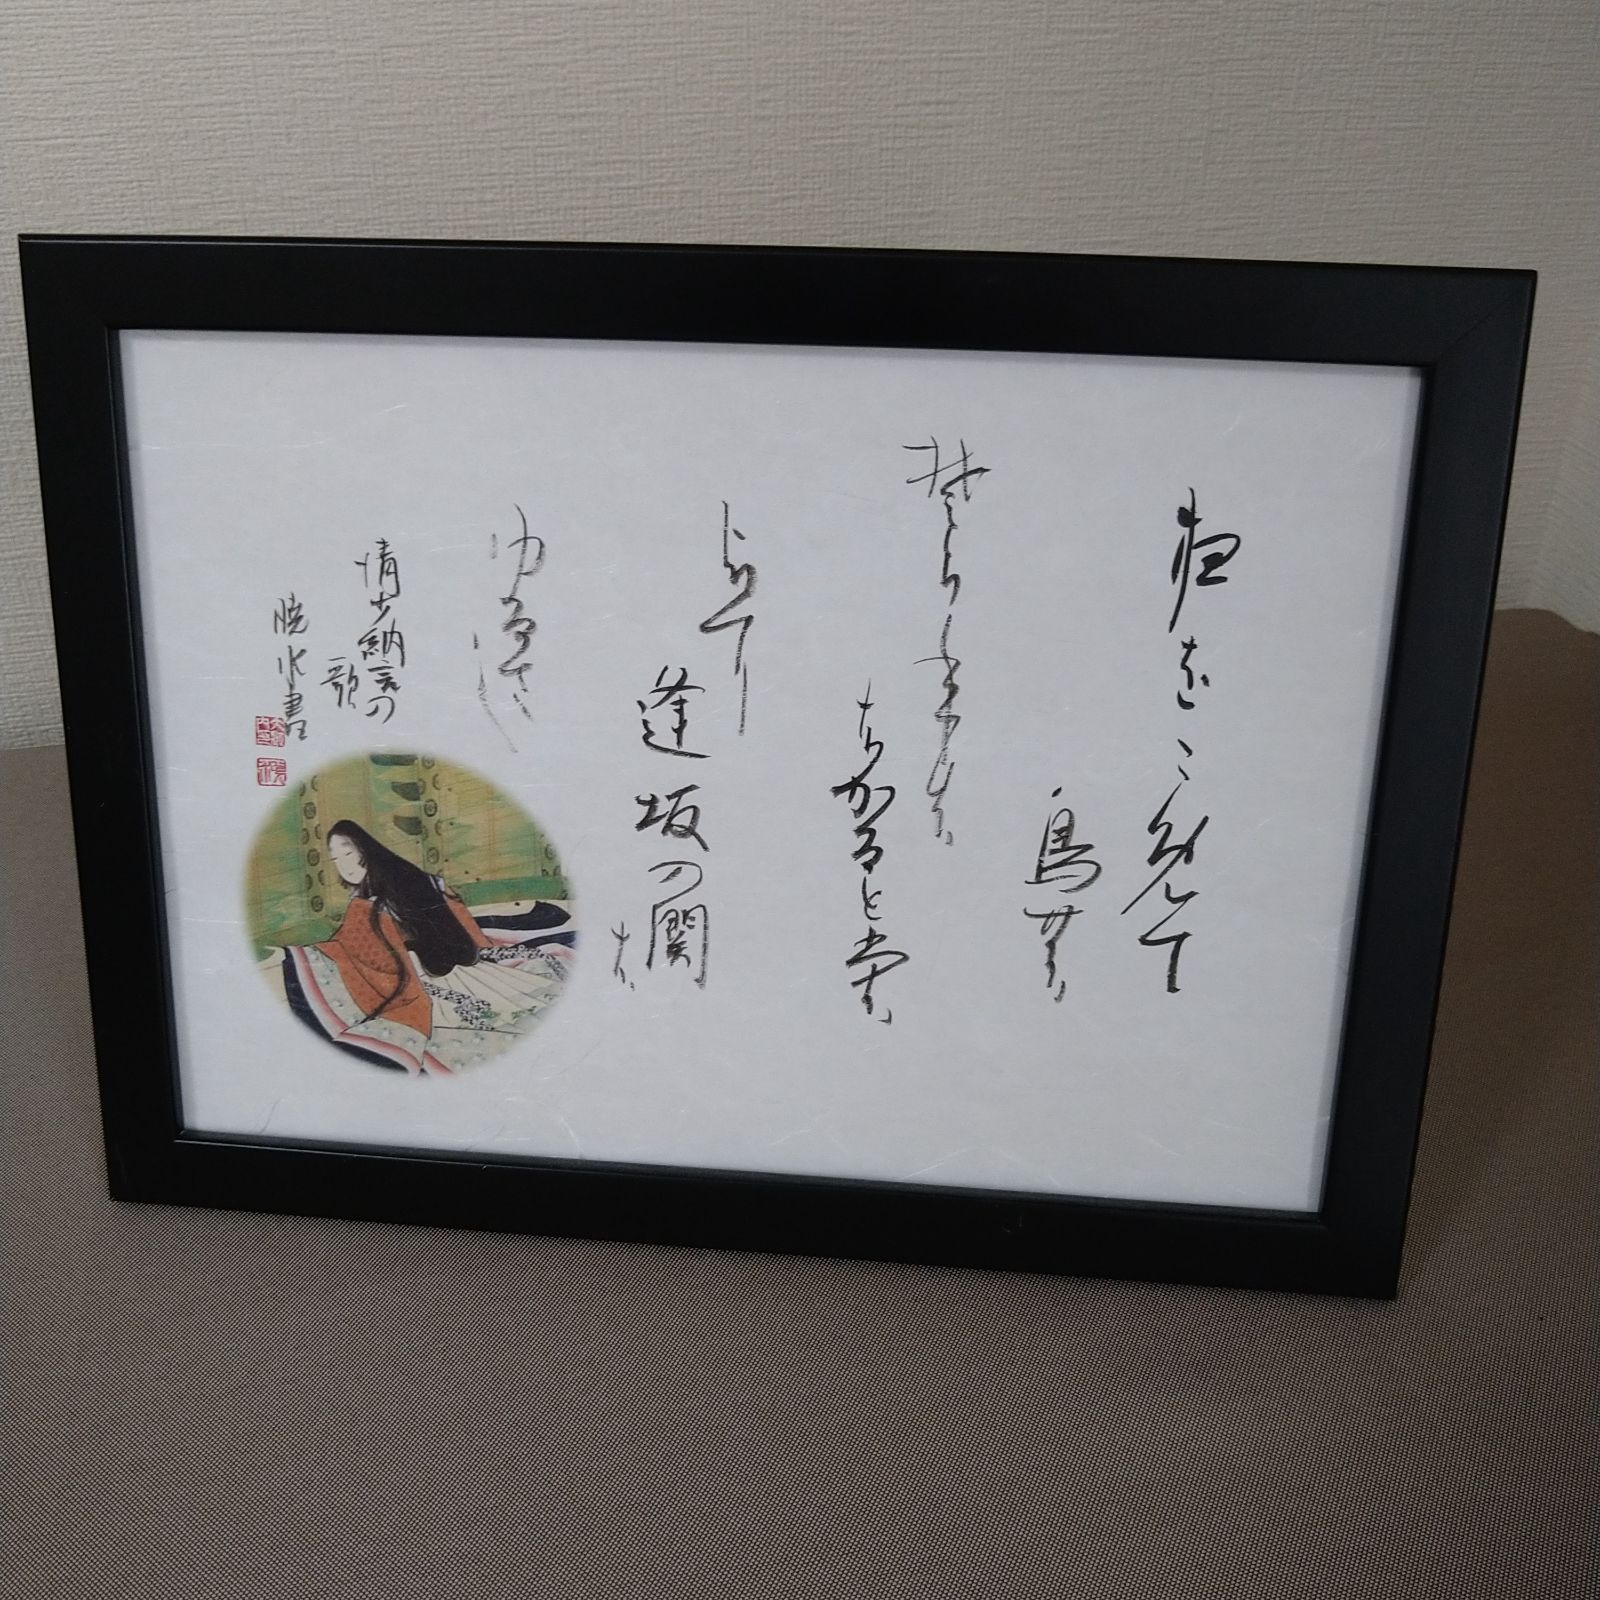 夜をこめて
鳥の
そらねは
はかるとも
よに
逢坂の関
は
ゆるさし
清少納言の
歌
暁水書